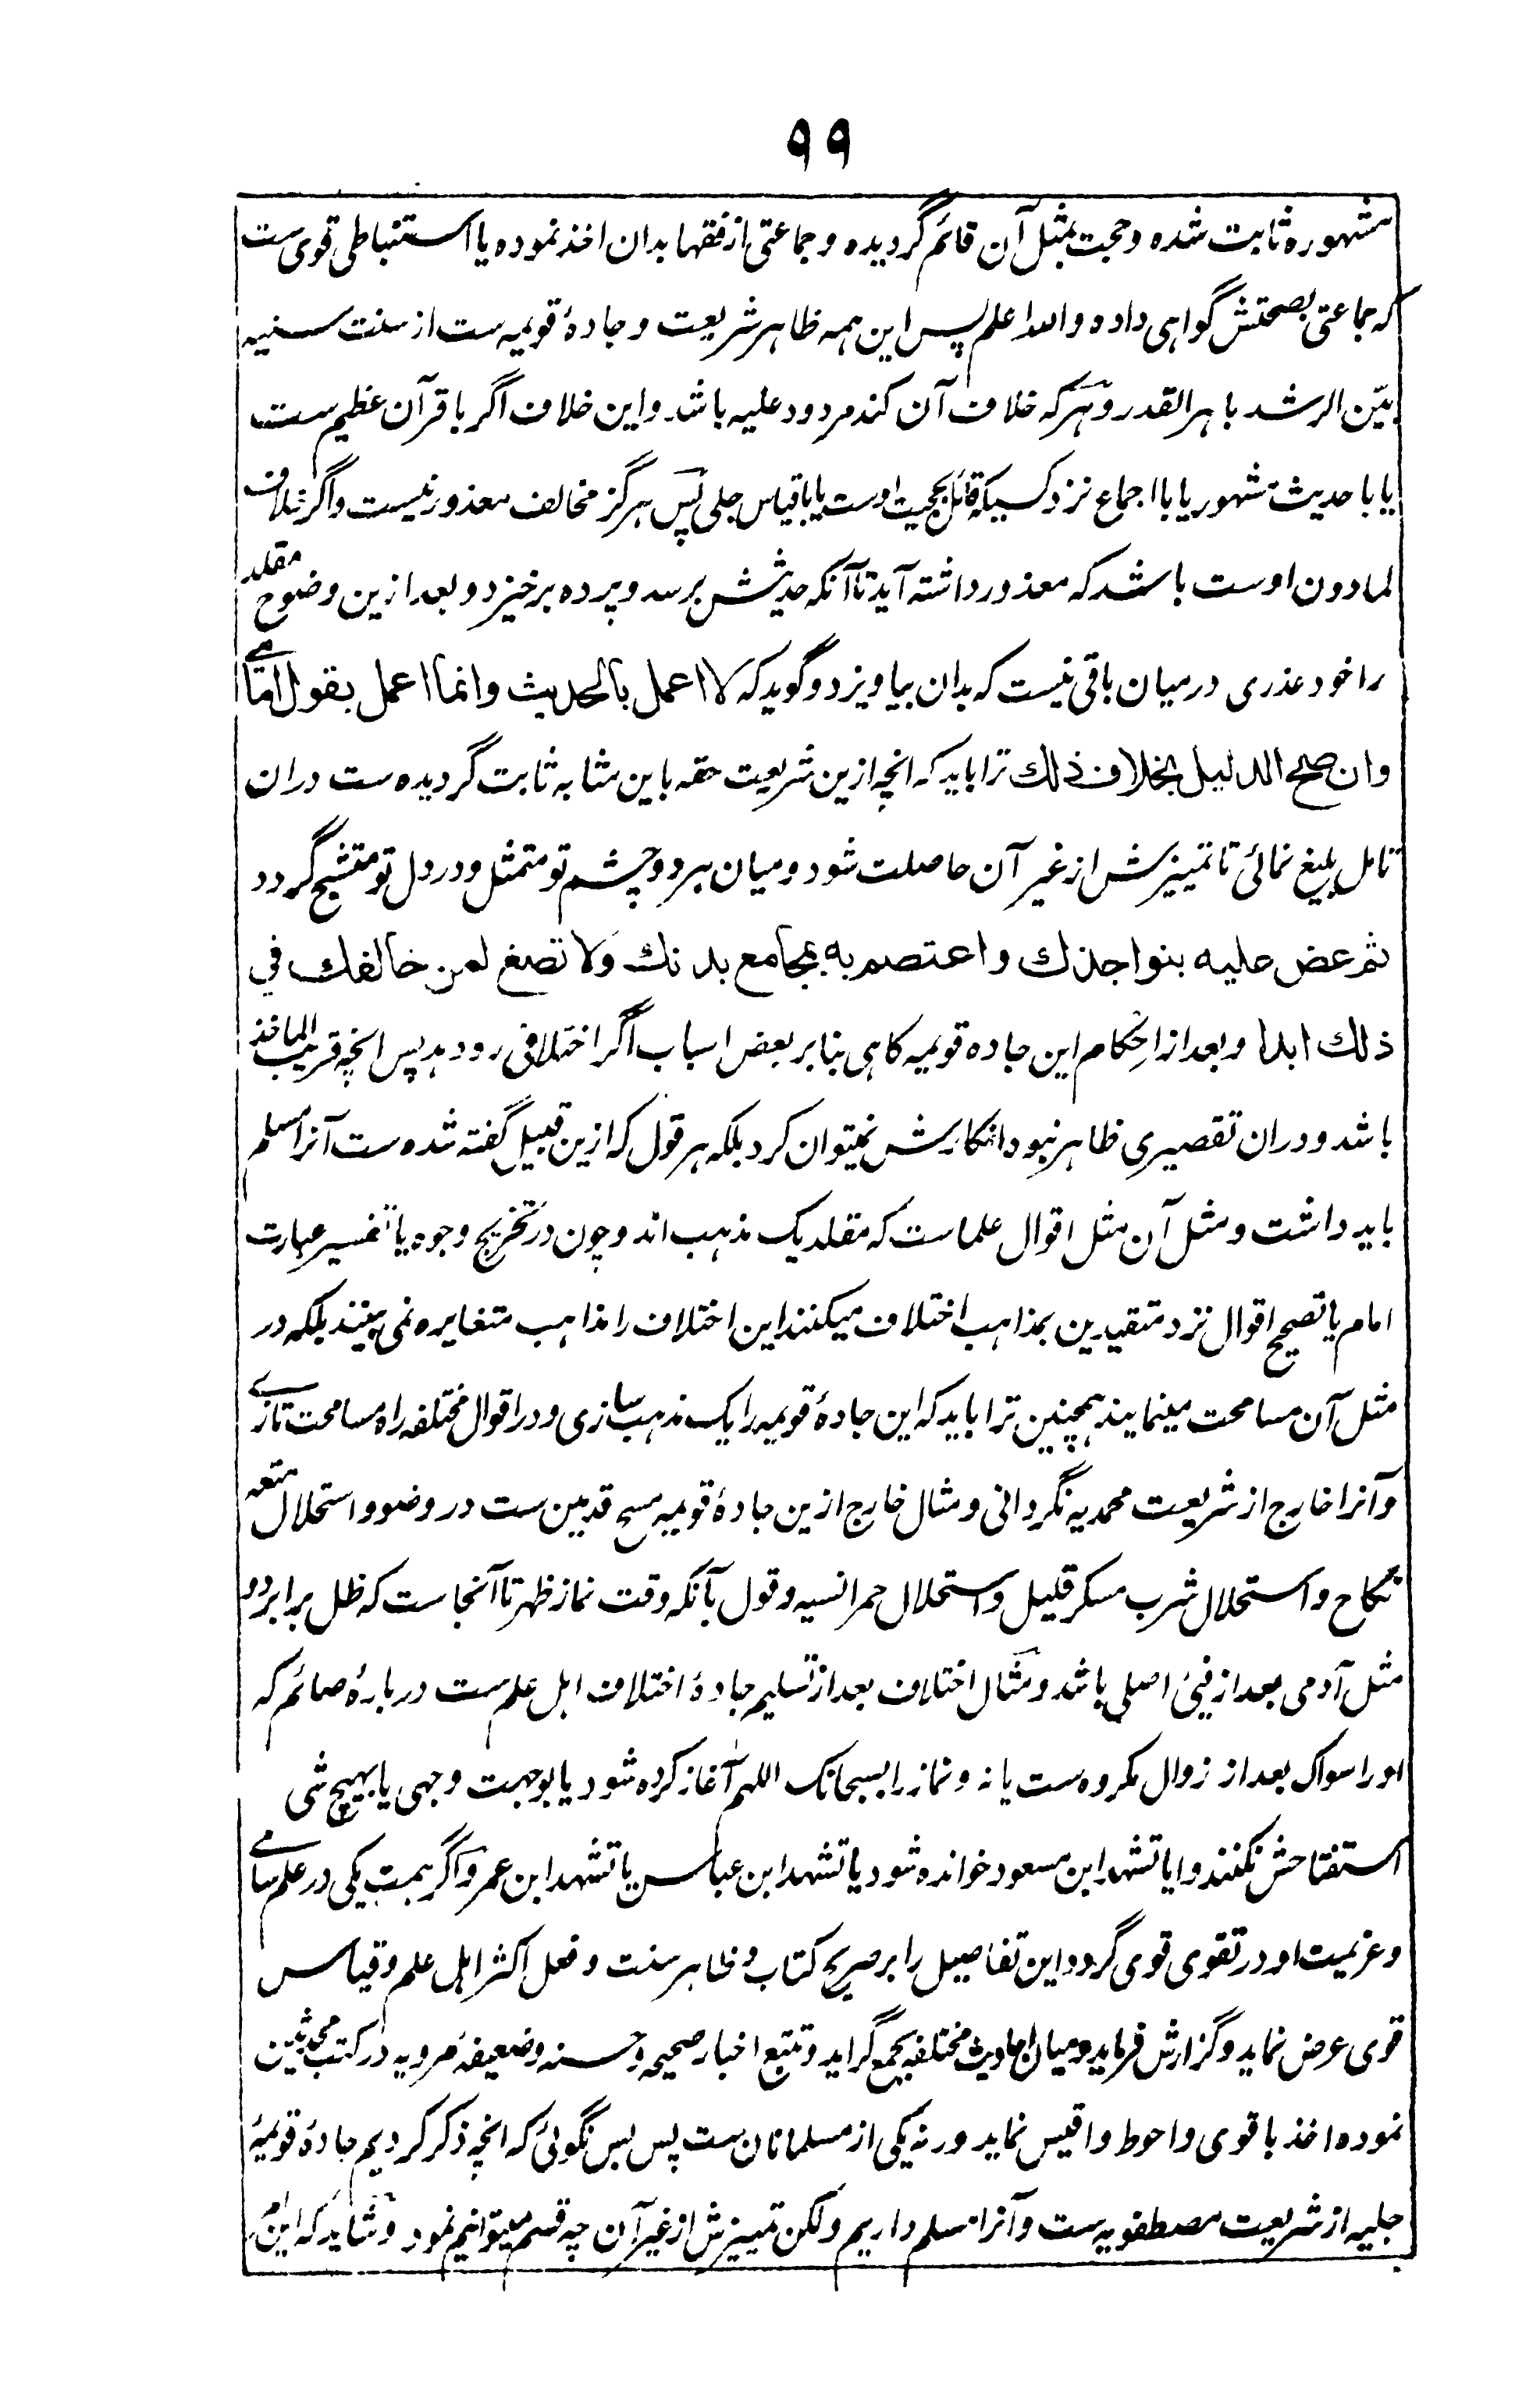 ۹۹
مشهوره ثابت شده و حجت بمثل آن قائم گردیده و جماعتی از فقها بدان اخذ نموده یا استنباطی قوی ست
که جماعتی بصحتش گواهی داده والله اعلم پس این همه ظاهر شریعت و جادهٔ قویمه ست از سنت سنیه
بیّن الرشد باهر القدر و هر که خلاف آن کند مردود علیه باشد و این خلاف اگر با قرآن عظیم ست
یا با حدیث مشهور یا با اجماع نزد کسیکه قائل بحجیت اوست یا با قیاس جلی پس هرگز مخالف معذور نیست و اگر خلاف
لمادون اوست باشد که معذور داشته آید تا آنکه حدیثش برسد و پرده برخیزد و بعد ازین وضوح مقلد
را خود عذری درمیان باقی نیست که بدان بیاویزد و گوید که لا اعمل بالحدیث وانما اعمل بقول امامی
وان صح الدلیل بخلاف ذلك ترا باید که انچه ازین شریعت حقه باین مثابه ثابت گردیده ست دران
تامل بلیغ نمائی تا تمییزش از غیر آن حاصلت شود و میان هر دو چشم تو متمثل و در دل تو متشبح گردد
ثم عض علیه بنواجذك واعتصم به بمجامع بدنك ولا تصغ لمن خالفك في
ذلك ابدا و بعد از احکام این جاده قویمه گاهی بنا بر بعض اسباب اگر اختلافی رو دهد پس انچه قریب الماخذ
باشد و دران تقصیری ظاهر نبود انکارش نمیتوان کرد بلکه هر قول که ازین قبیل گفته شده ست آنرا مسلم
باید داشت و مثل آن مثل اقوال علماست که مقلد یک مذهب اند و چون در تخریج وجوه یا تفسیر عبارت
امام یا تصحیح اقوال نزد متقیدین بمذاهب اختلاف میکنند این اختلاف را مذاهب متغایره نمی بینند بلکه در
مثل آن مسامحت مینمایند همچنین ترا باید که این جادهٔ قویمه را یک مذهب سازی و در اقوال مختلفه راه مسامحت تازی
و آنرا خارج از شریعت محمدیه نگردانی و مثال خارج ازین جادهٔ قویمه مسح قدمین ست در وضو و استحلال متعه
نکاح و استحلال شرب مسکر قلیل و استحلال حمر انسیه و قول بآنکه وقت نماز ظهر تا آنجاست که ظل برابر دو
مثل آدمی بعد از فیئ اصلی باشد و مثال اختلاف بعد از تسلیم جادهٔ اختلاف اهل علم ست دربارهٔ صائم که
او را سواک بعد از زوال مکروه ست یا نه و نماز را بسبحانک اللهم آغاز کرده شود یا بوجهت وجهی یا بهیچ شی
استفتاحش نکنند و ایا تشهد ابن مسعود خوانده شود یا تشهد ابن عباس یا تشهد ابن عمر و اگر همت یکی در علم سامی
و عزیمت او در تقوی قوی گردد این تفاصیل را بر صریح کتاب و ظاهر سنت و فعل اکثر اهل علم و قیاس
قوی عرض نماید و گزارش فرماید و میان احادیث مختلفه بجمع گراید و تتبع اخبار صحیحه و حسنه و ضعیفه مرویه در کتب محدثین
نموده اخذ باقوی و احوط و اقیس نماید ورنه یکی از مسلمانان ست پس بس نگوئی که انچه ذکر کردیم جادهٔ قویمهٔ
جلیه از شریعت مصطفویه ست و آنرا مسلم داریم ولکن تمییزش از غیر آن چه قسم میتوانیم نمود و شاید که این